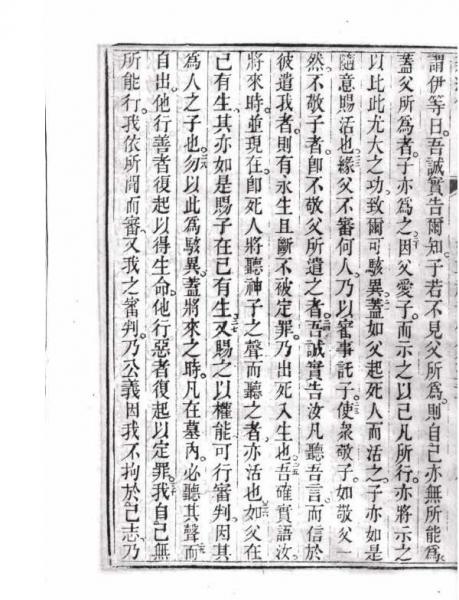 謂伊等曰吾誠實告爾知子若不見父所為則自己亦無所能為。
蓋父所為者子亦為之因父愛子而示之以己凡所行亦將示之
以此此尤大之功致爾可駭異蓋如父起死人而活之子亦如是
隨意賜活也緣父不審何人乃以審事託子使衆敬子如敬父一
然不敬子者卽不敬父所遣之者吾誠實告汝凡聽吾言而信於
彼遣我者則有永生且斷不被定罪乃出死入生也吾確實語汝
將來時並現在卽死人將聽神子之聲而聽之者亦活也如父在
己有生其亦如是賜子在己有生又賜之以權能可行審判因其
為人之子也勿以此為駭異蓋將來之時凡在墓內必聽其聲而
自出他行善者復起以得生命他行惡者復起以定罪我自己無
所能行我依所聞而審又我之審判乃公義因我不拘於己志乃